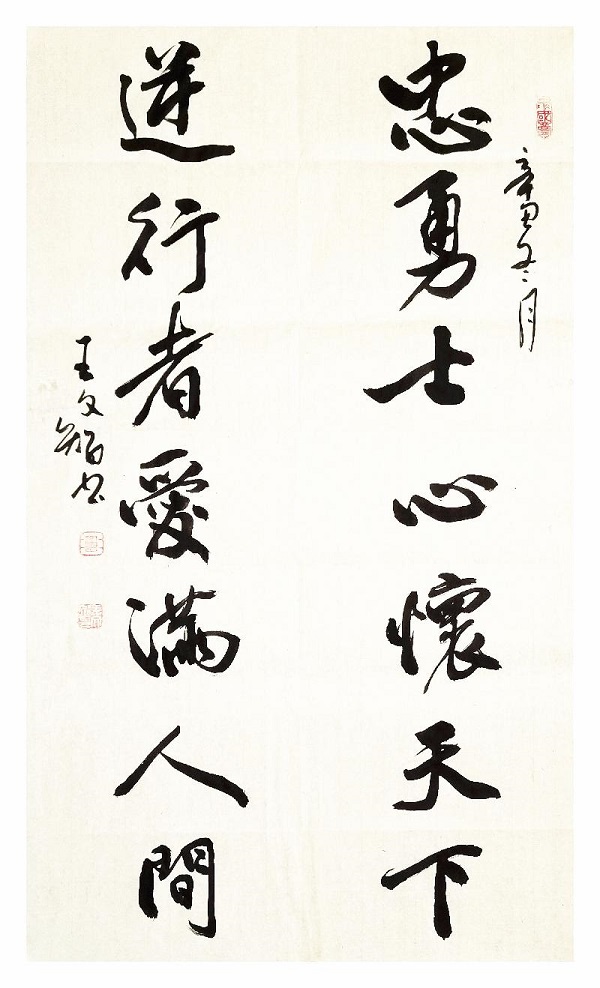 辛丑冬月
忠勇士心懷天下
逆行者愛滿人間
王文
書